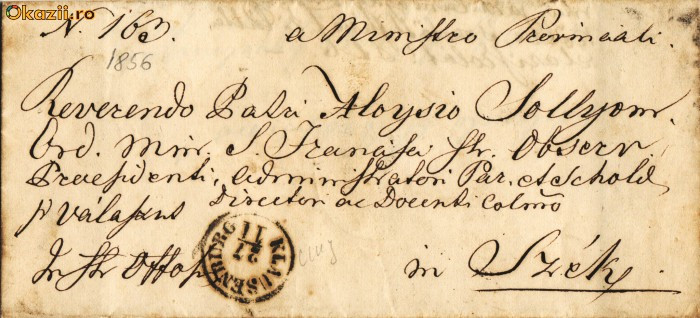 Okazii.ro
N. 163. a Ministro Provinciali.
1856
Reverendo Patri Aloysio Sollyom.
Ord. Min. S. Francisci Str. Observ.
Praesidenti, Administratori Par. et Schold
Directori ac Docenti Colmo
Válaszus
in Szék
KLAUSENBURG
27
11
cluj